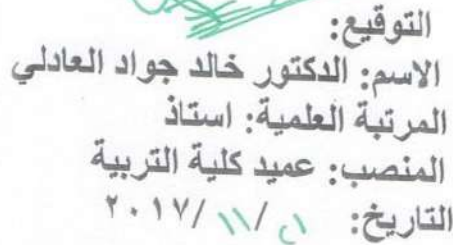 التوقيع:
الاسم: الدكتور خالد جواد العادلي
المرتبة العلمية: استاذ
المنصب: عميد كلية التربية
التاريخ: / ١١ / ٢٠١٧